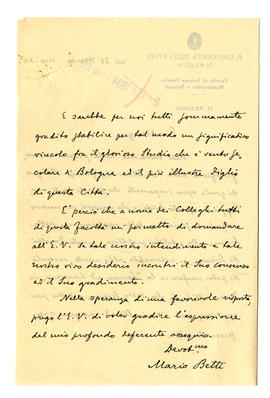 E sarebbe per noi tutti sommamente
gradito stabilire per tal modo un significativo
vincolo fra il glorioso Studio che è vanto se-
colare di Bologna ed il più illustre Figlio
di questa Città.
È perciò che a nome dei Colleghi tutti
di questa Facoltà mi permetto di domandare
all'E.V. se tale nostro intendimento e tale
nostro vivo desiderio incontri il Suo consenso
ed il Suo gradimento.
Nella speranza di una favorevole risposta,
prego l'E.V. di voler gradire l'espressione
del mio profondo deferente ossequio.
Devot.mo
Mario Betti